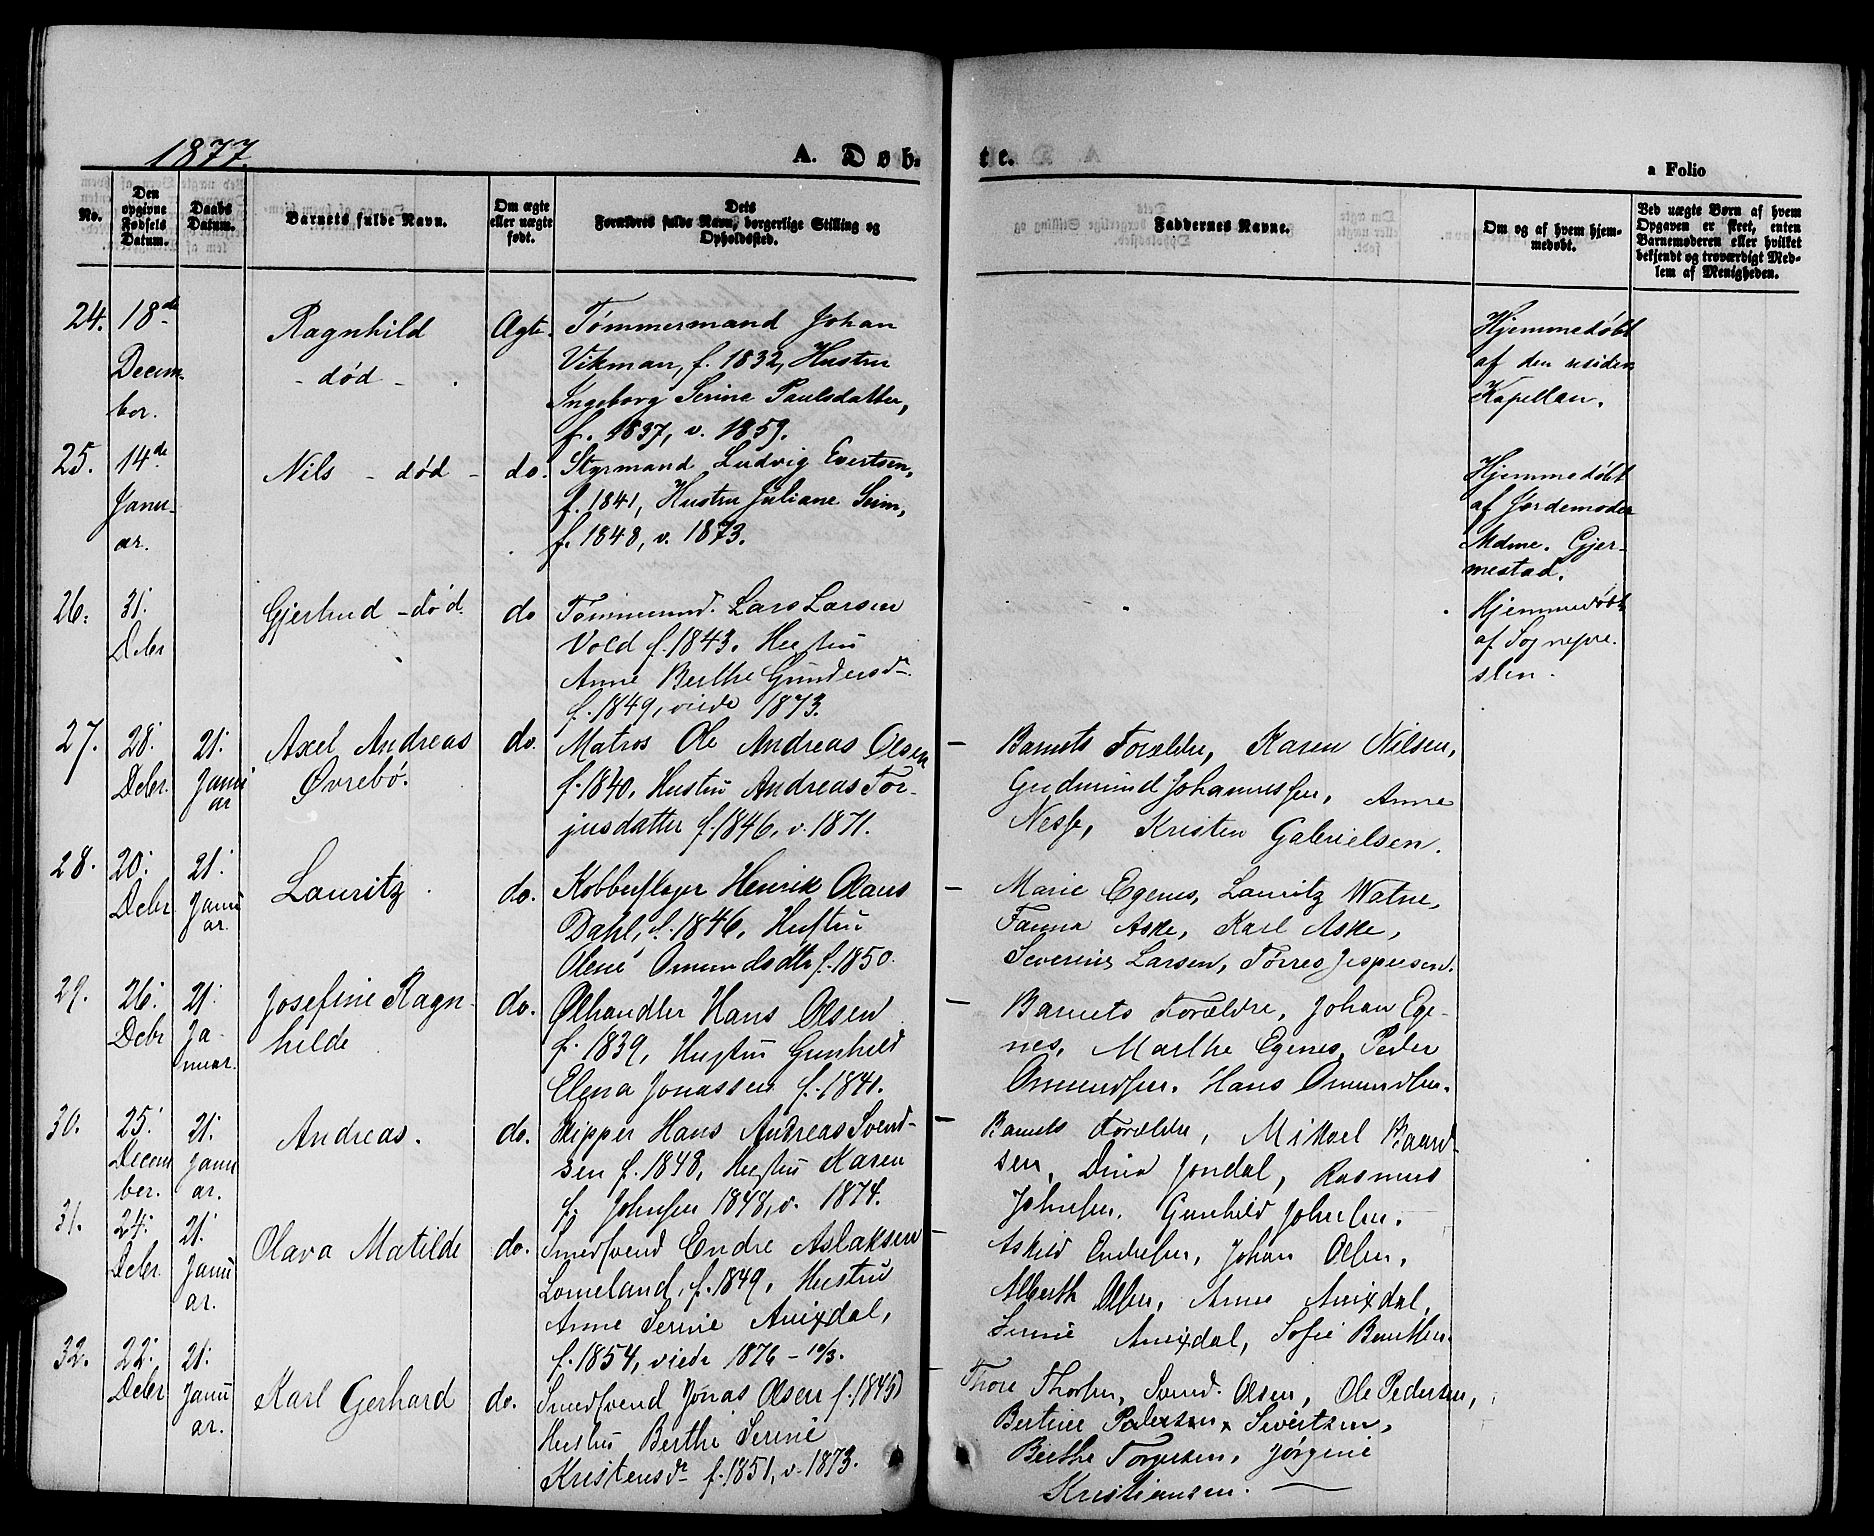 1877.
A. Døb-
te.
a Folio
No.
Den opgivne Fødsels Datum.
Daabs Datum.
Barnets fulde Navn.
Om ægte eller uægte født.
Dets Forældres fulde Navn, borgerlige Stilling og Opholdssted.
Faddernes Navne.
Om og af hvem hjem-
medøbt.
Ved uægte Børn af hvem
Opgaven er skeet, enten
Barnemoderen eller hvilket
bekjendt og troværdigt Med-
lem af Menigheden.
24.
18de
Decem-
ber.
Ragnhild
- død -
Ægte.
Tømmermand Johan
Vikman, f. 1832, Hustru
Ingeborg Serine Paulsdatter,
f. 1837, v. 1859.
Hjemmedøbt
af den residen
Kapellan.
25.
14de
Janu-
ar.
Nils - død -
do.
Styrmand Ludvig Evertsen,
f. 1841, Hustru Juliane Seim,
f. 1848, v. 1873.
Hjemmedøbt
af Jordemoder
Mdme. Gjer-
mestad.
26.
31.
Debr
Gjertrud - død
do
Tømmermd. Lars Larsen
Vold f. 1843. Hustru
Anne Berthe Gundersdr
f. 1849, viede 1873.
Hjemmedøbt
af Sognepre-
sten.
27.
28.
Debr.
21.
Janu
ar
Axel Andreas
Øvrebø.
do.
Matros Ole Andreas Olsen
f. 1840, Hustru Andreas Tor-
jusdatter f. 1846, v. 1871.
- Barnets Forældre, Karen Nilsen,
Gudmund Johannesen, Anne
Nesse, Kristen Gabrielsen.
28.
20.
Debr
21.
Janu
ar.
Lauritz
do.
Kobberslager Henrik Olaus
Dahl, f. 1846, Hustru
Olene Omundsdtr f. 1850.
- Marie Egenes, Lauritz Watne,
Fanna Aske, Karl Aske,
Severine Larsen, Tørres Jespersen.
29.
26.
Debr
21.
Ja-
nuar.
Josefine Ragn-
hilde
do.
Ølhandler Hans Olsen
f. 1839, Hustru Gunhild
Elena Jonassen f. 1841.
- Barnets Forældre, Johan Ege-
nes, Marthe Egenes, Peder
Omundsen. Hans Omundsen.
30.
25.
Decem
ber.
21.
Janu
ar.
Andreas.
do.
Skipper Hans Andreas Svend-
sen f. 1848, Hustru Karen
f. Johnsen 1848, v. 1874.
- Barnets Forældre, Mikael Baard-
sen, Dina Jondal, Rasmus
Johnsen, Gunhild Johnsen.
31.
24.
Debr.
21.
Janu
ar.
Olava Matilde
do.
Smedsvend Endre Aslaksen
Lomeland, f. 1849, Hustru
Anne Serine Anixdal,
f. 1854, viede 1876 - 10/3.
- Askild Endresen, Johan Olsen,
Alberth Olsen, Anne Anixdal,
Serine Anixdal, Sofie Bentsen.
32.
22.
Debr
21.
Janu
ar.
Karl Gerhard
do.
Smedsvend Jonas Olsen f. 1845
Hustru Berthe Serine
Kristensdr f. 1851, v. 1873.
- Thore Thorsen, Svend Olsen, Ole Pedersen,
Bertine Pedersen, Sivertsen,
Berthe Torgersen, Jørgine
Kristiansen.